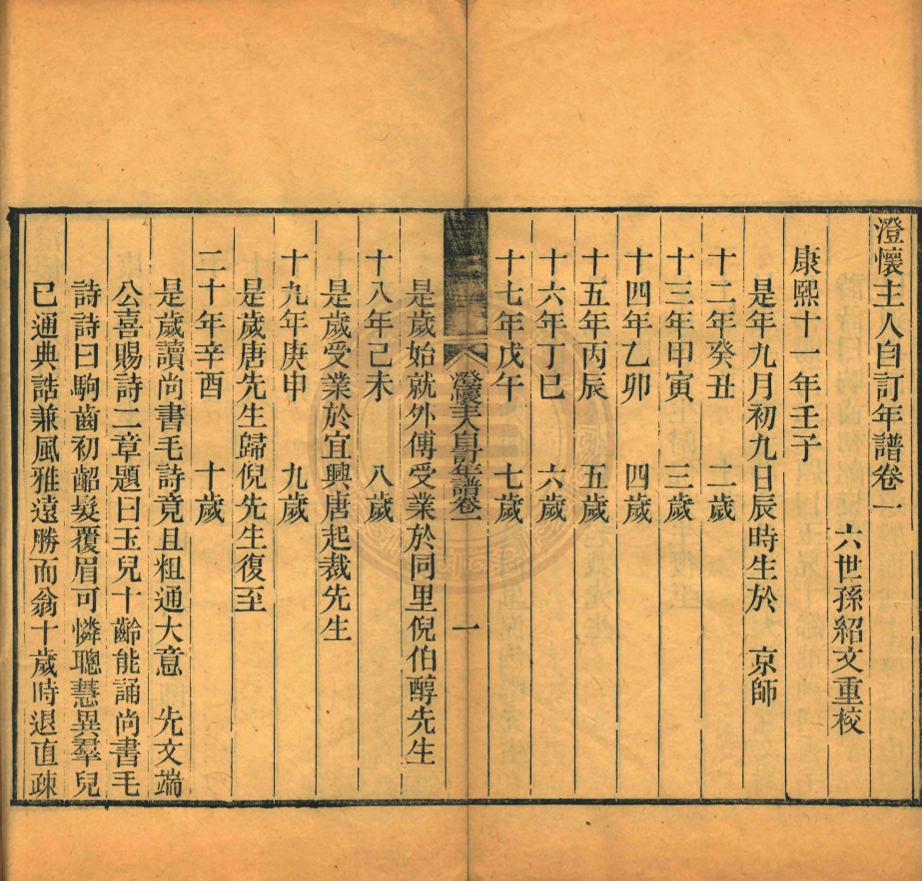 澄懷主人自訂年譜卷一
六世孫紹文重校
康熙十一年壬子
是年九月初九日辰時生於 京師
十二年癸丑 二歲
十三年甲寅 三歲
十四年乙卯 四歲
十五年丙辰 五歲
十六年丁巳 六歲
十七年戊午 七歲
澄懷主人自訂年譜卷一 一
是歲始就外傅受業於同里倪伯醇先生
十八年己未 八歲
是歲受業於宜興唐起裁先生
十九年庚申 九歲
是歲唐先生歸倪先生復至
二十年辛酉 十歲
是歲讀尚書毛詩竟且粗通大意 先文端
公喜賜詩二章題曰玉兒十齡能誦尚書毛
詩詩曰駒齒初齠髮覆眉可憐聰慧異羣兒
已通典誥兼風雅遠勝而翁十歲時退直疎